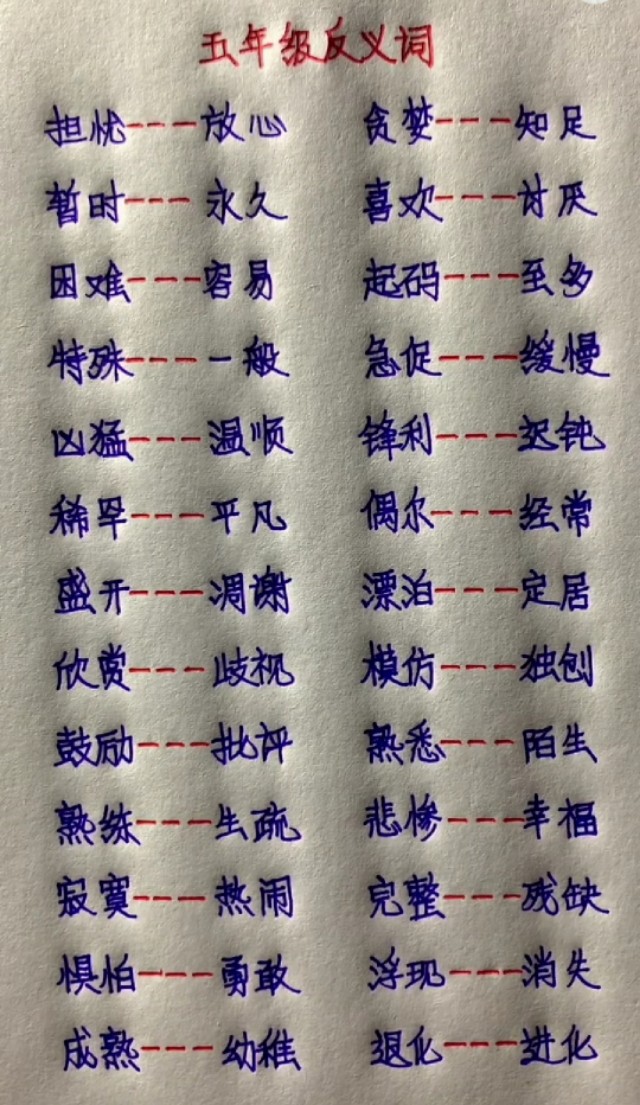 五年级反义词
担忧---放心 贪婪---知足
暂时---永久 喜欢---讨厌
困难---容易 起码---至多
特殊---一般 急促---缓慢
凶猛---温顺 锋利---迟钝
稀罕---平凡 偶尔---经常
盛开---凋谢 漂泊---定居
欣赏---歧视 模仿---独创
鼓励---批评 熟悉---陌生
熟练---生疏 悲惨---幸福
寂寞---热闹 完整---残缺
惧怕---勇敢 浮现---消失
成熟---幼稚 退化---进化